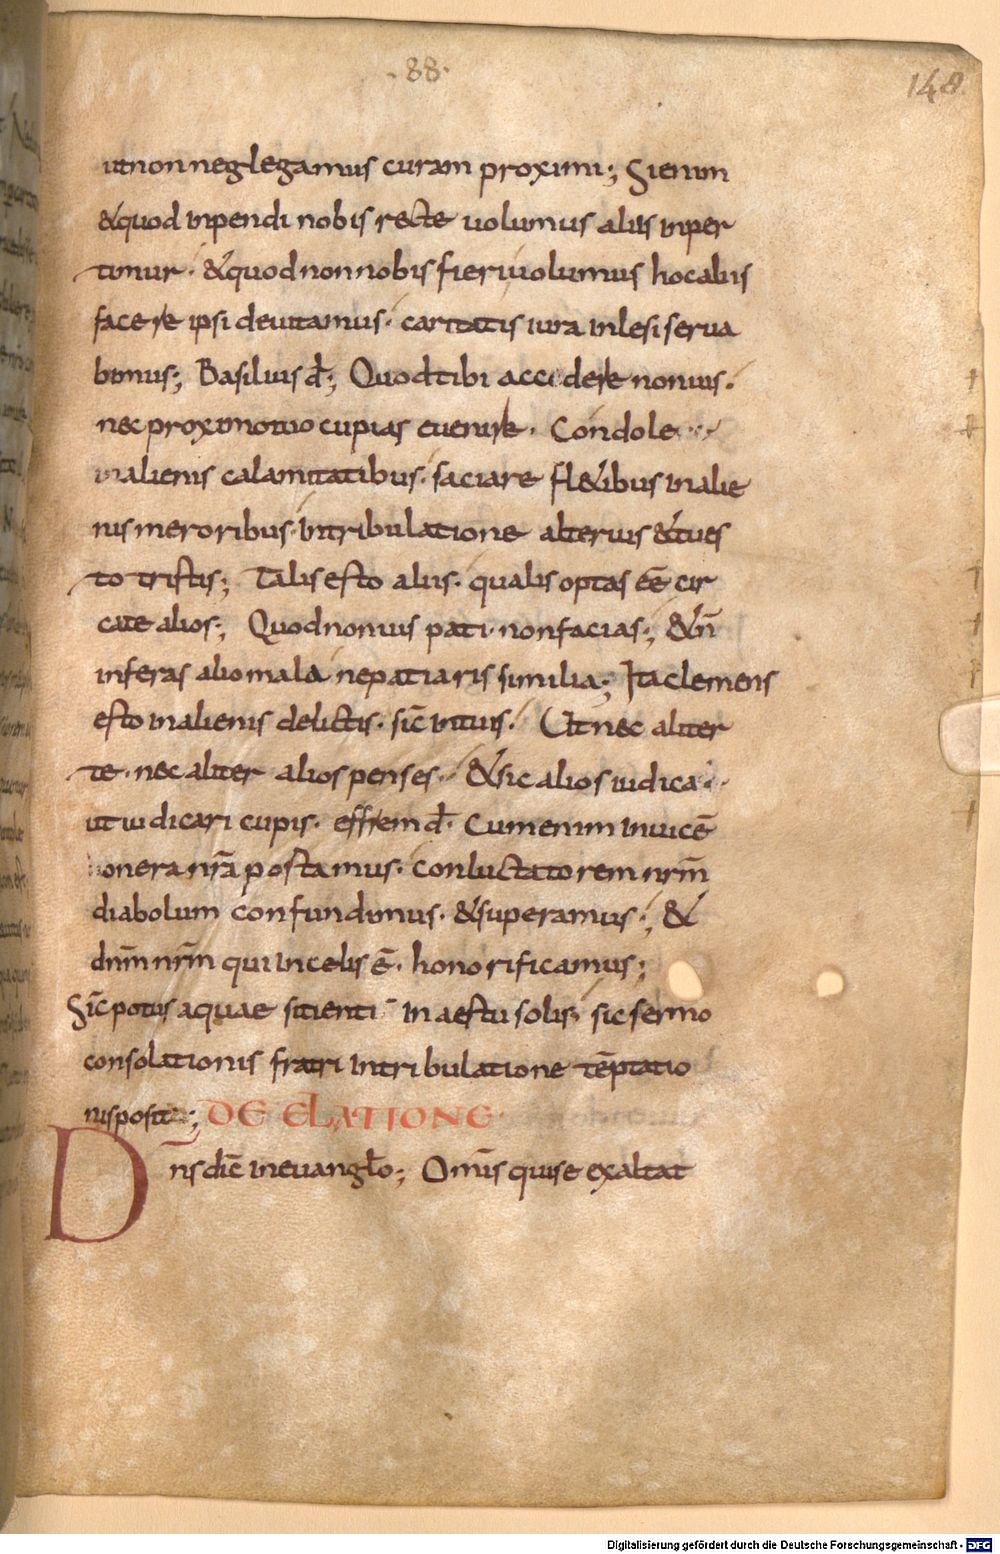 ·88·
148
ut non neglegamus curam proximi; Si enim
&quod inpendi nobis recte uolumus aliis inper
timur · &quod non nobis fieri uolumus hoc aliis
facere ipsi deuitamus · caritatis iura inlesi serua
bimus; Basilius dⁱ; Quod tibi accedere non uis ·
nec proximo tuo cupias euenire · Condole
in alienis calamitatibus · saciare fl&ibus in alie
nis meroribus · in tribulatione alterius &tu es
to tristis; Talis esto aliis · qualis optas eē cir
ca te alios; Quod non uis pati · non facias; &n̄
inferas alio mala ne patiaris similia; Ita clemens
esto in alienis delictis · sic̄ in tuis · Ut nec aliter
te · nec aliter alios penses · &sic alios iudica
ut iudicari cupis · effrem dⁱ · Cum enim inuicē
honera nr̄a postamus · conluctatorem nr̄m
diabolum confundimus · &superamus; &
dnm̄ nr̄m qui in celis ē · honorificamus;
Sic̄ potus aquae sitienti in aestu solis · sic sermo
consolationis fratri in tribulatione tēptatio
nis posit ; DE ELATIONE ·
Dn̄s dic̄ in euanglⁱo; Omīs qui se exaltat
Digitalisierung gefördert durch die Deutsche Forschungsgemeinschaft - DFG